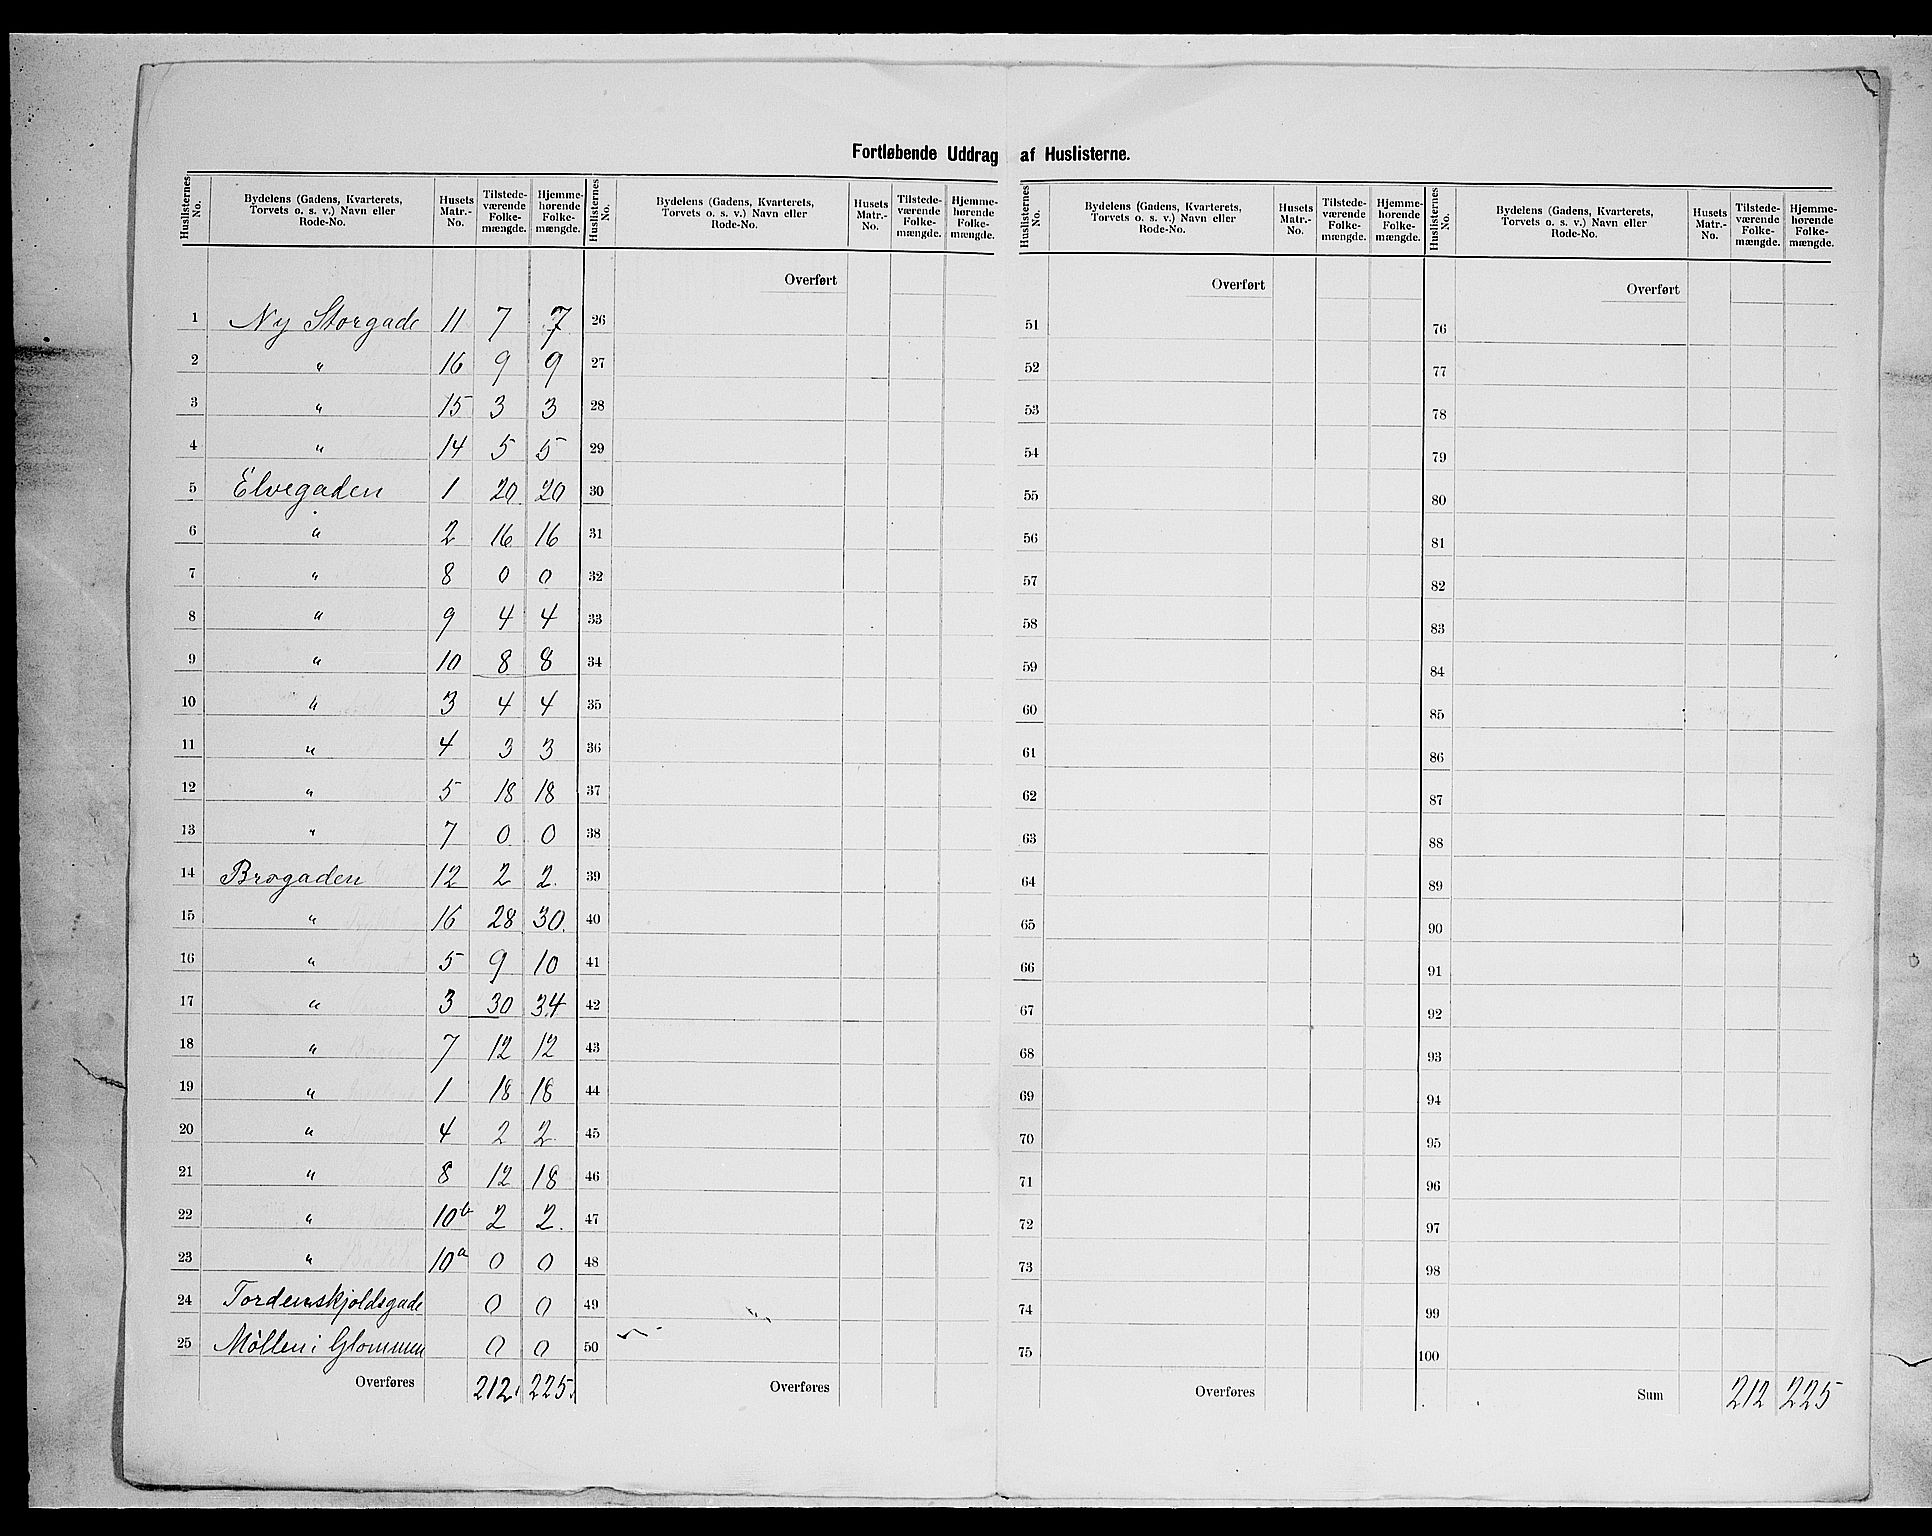 Fortløbende Uddrag af Huslisterne.
Huslisternes No. | Bydelens (Gadens, Kvarterets, Torvets o. s. v.) Navn eller Rode-No. | Husets Matr.-No. | Tilstedeværende Folkemængde. | Hjemmehørende Folkemængde. | Huslisternes No. | Bydelens (Gadens, Kvarterets, Torvets o. s. v.) Navn eller Rode-No. | Husets Matr.-No. | Tilstedeværende Folkemængde. | Hjemmehørende Folkemængde. | Huslisternes No. | Bydelens (Gadens, Kvarterets, Torvets o. s. v.) Navn eller Rode-No. | Husets Matr.-No. | Tilstedeværende Folkemængde. | Hjemmehørende Folkemængde. | Huslisternes No. | Bydelens (Gadens, Kvarterets, Torvets o. s. v.) Navn eller Rode-No. | Husets Matr.-No. | Tilstedeværende Folkemængde. | Hjemmehørende Folkemængde.
Overført Overført Overført
1 Ny Storgade 11 7 7 26 51 76
2 " 16 9 9 27 52 77
3 " 15 3 3 28 53 78
4 " 14 5 5 29 54 79
5 Elvegaden 1 20 20 30 55 80
6 " 2 16 16 31 56 81
7 " 8 0 0 32 57 82
8 " 9 4 4 33 58 83
9 " 10 8 8 34 59 84
10 " 3 4 4 35 60 85
11 " 4 3 3 36 61 86
12 " 5 18 18 37 62 87
13 " 7 0 0 38 63 88
14 Brogaden 12 2 2. 39 64 89
15 " 16 28 30. 40 65 90
16 " 5 9 10 41 66 91
17 " 3 30 34 42 67 92
18 " 7 12 12 43 68 93
19 " 1 18 18 44 69 94
20 " 4 2 2. 45 70 95
21 " 8 12 18 46 71 96
22 " 10b 2 2. 47 72 97
23 " 10a 0 0 48 73 98
24 Tordenskjoldsgade 0 0 49 74 99
25 Møllen i Glommen 0 0 50 75 100
Overføres 212 225. Overføres Overføres Sum 212 225